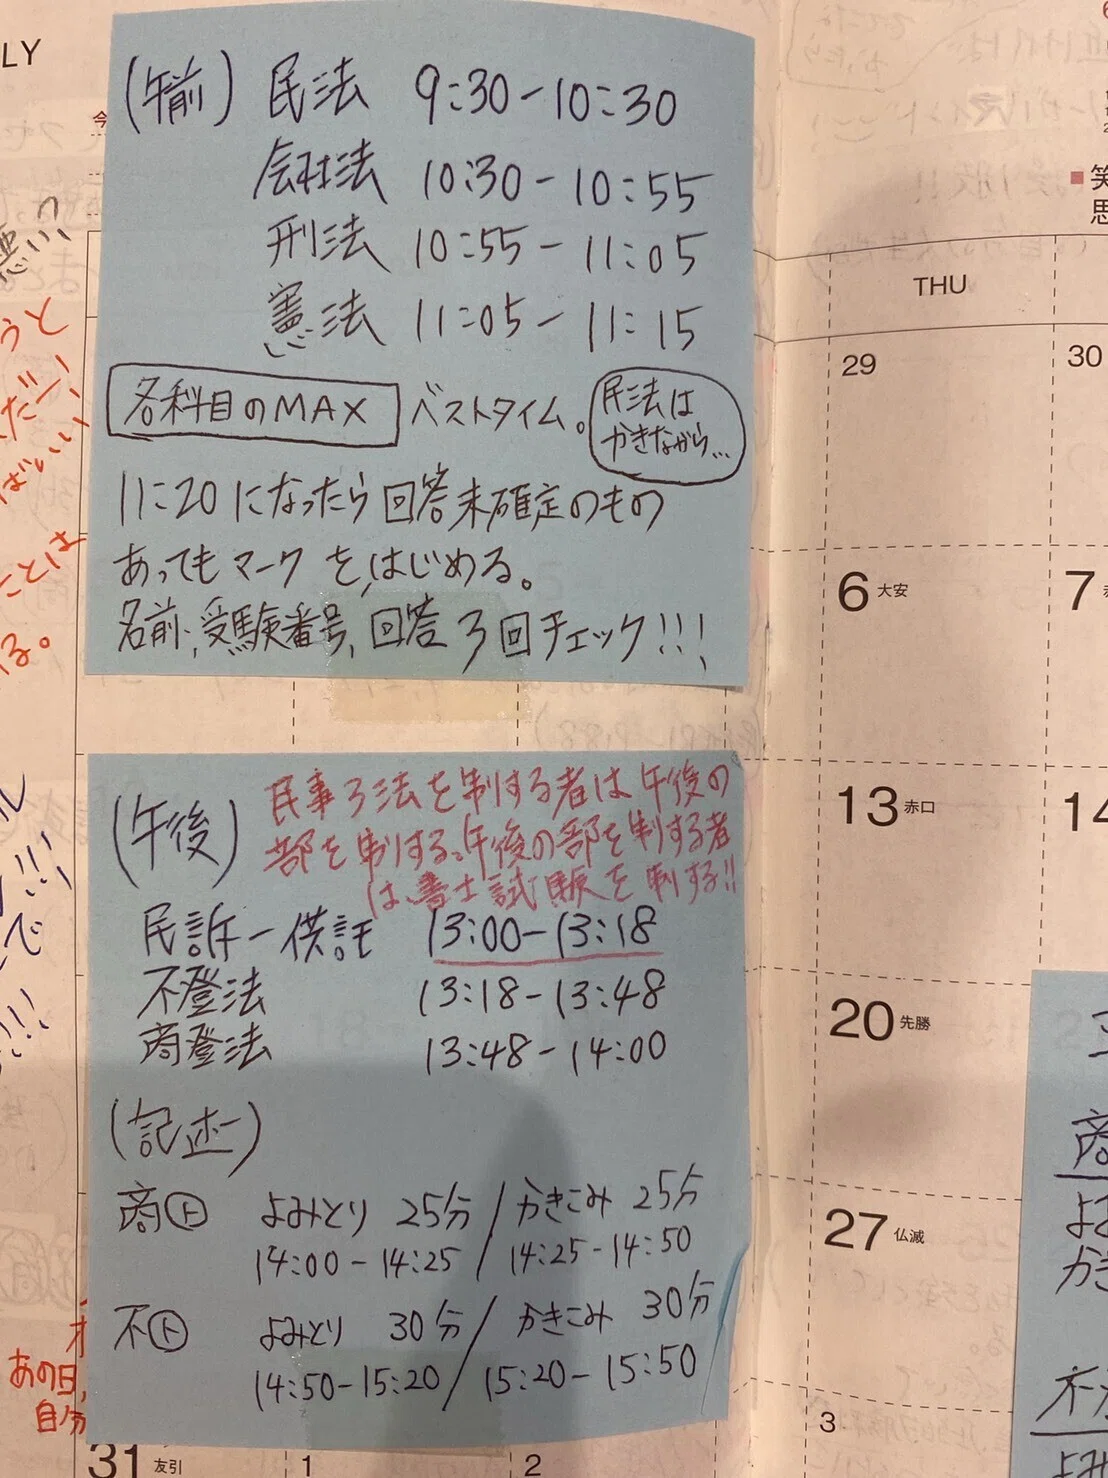 LY
(午前) 民法 9:30-10:30
会社法 10:30-10:55
刑法 10:55-11:05
憲法 11:05-11:15
各科目のMAX ベストタイム。
民法は
かきながら…
11:20になったら回答未確定のもの
あってもマークをはじめる。
名前、受験番号、回答3回チェック!!!
(午後)
民事3法を制する者は午後の
部を制する。午後の部を制する者
は、書士試験を制する!!
民訴-供託 13:00-13:18
不登法 13:18-13:48
商登法 13:48-14:00
(記述)
商ト よみとり 25分 / かきこみ 25分
14:00-14:25 / 14:25-14:50
不ト よみとり 30分 / かきこみ 30分
14:50-15:20 / 15:20-15:50
うと
だー!
ばいい
ことは
る。
で
あの日,
自分
31 友引
1
2
3
THU
29
30
6 大安
7
13 赤口
14
20 先勝
27 仏滅
笑
思
商
よみ
かき